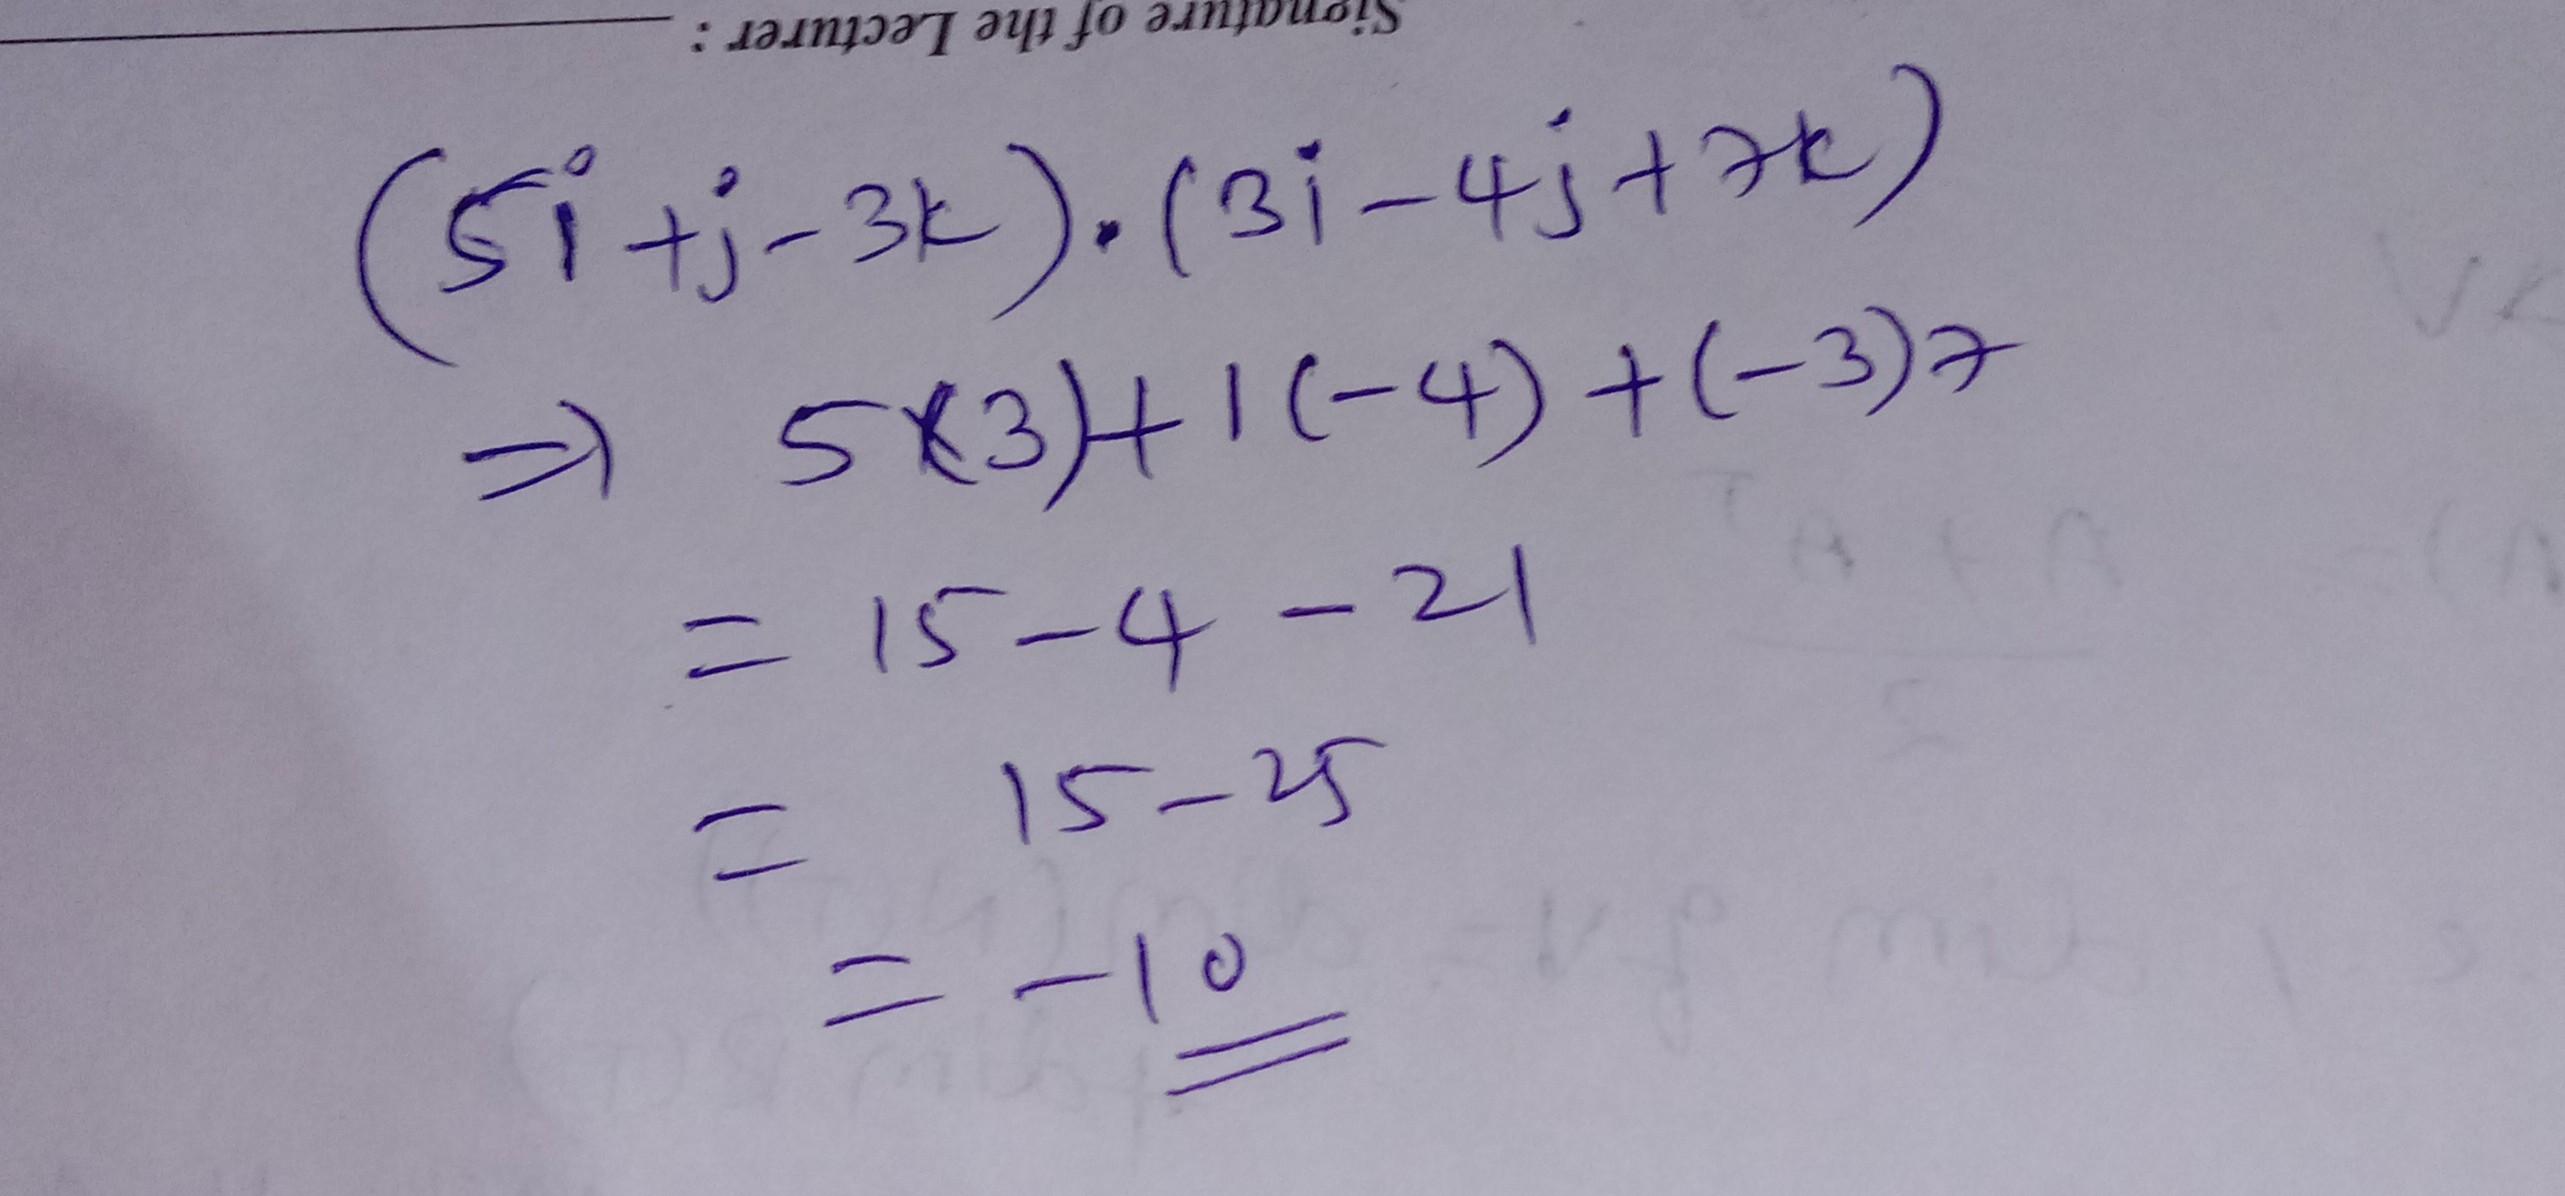 Signature of the Lecturer :
(5i+j-3k).(3i-4j+7k)
⇒ 5(3)+1(-4)+(-3)7
= 15-4-21
= 15-25
= -10